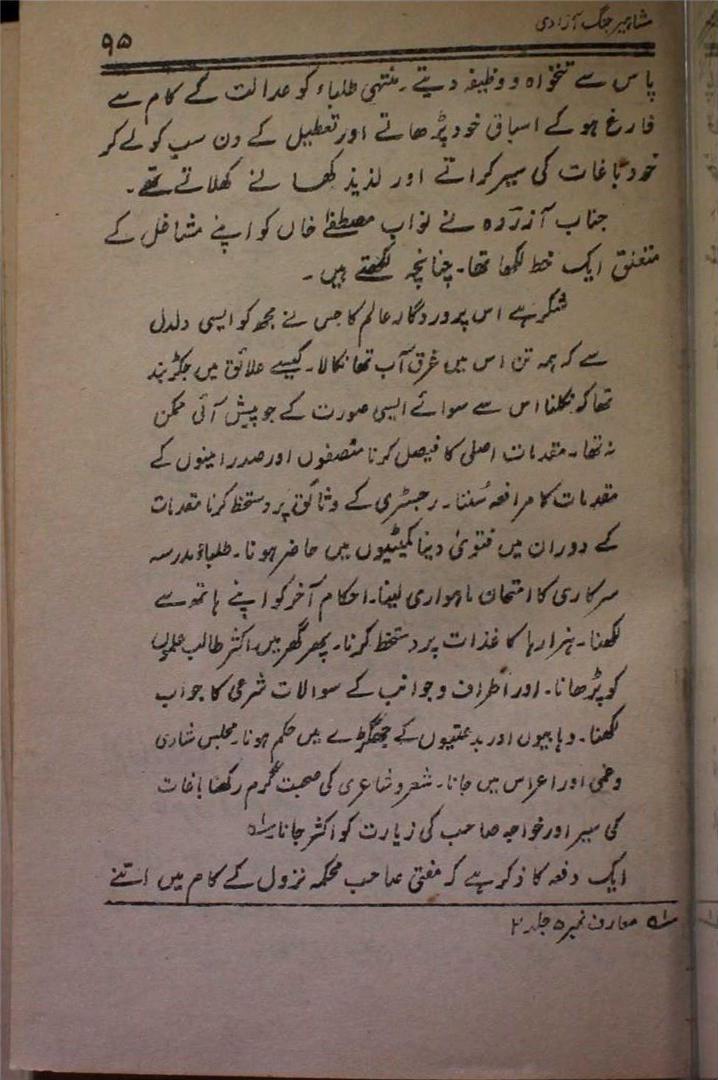 مشاہیر جنگ آزادی
۹۵
پاس سے تنخواہ و وظیفہ دیتے۔ منتہی طلباء کو عدالت کے کام سے
فارغ ہو کے اسباق خود پڑھاتے اور تعطیل کے دن سب کو لے کر
خود باغات کی سیر کراتے اور لذیذ کھانے کھلاتے تھے۔
جناب آزردہ نے نواب مصطفےٰ خاں کو اپنے مشاغل کے
متعلق ایک خط لکھا تھا۔ چنانچہ لکھتے ہیں۔
شکر ہے اس پروردگار عالم کا جس نے مجھ کو ایسی دلدل
سے کہ ہمہ تن اس میں غرق آب تھا نکالا۔ کیسے علائق میں جکڑ بند
تھا کہ نکلنا اس سے سوائے ایسی صورت کے جو پیش آئی ممکن
نہ تھا۔ مقدمات اصلی کا فیصل کرنا منصفوں اور صدر امینوں کے
مقدمات کا مرافعہ سُننا۔ رجسٹری کے وثائق پر دستخط کرنا مقدمات
کے دوران میں فتویٰ دینا کمیٹیوں میں حاضر ہونا۔ طلباؤ مدرسہ
سرکاری کا امتحان ماہواری لینا۔ احکام آخر کو اپنے ہاتھ سے
لکھنا۔ ہزارہا کاغذات پر دستخط کرنا۔ پھر گھر میں اکثر طالب علموں
کو پڑھانا۔ اور اطراف و جوانب کے سوالات شرعی کا جواب
لکھنا۔ وہابیوں اور بدعتیوں کے جھگڑے میں حکم ہونا۔ مجلس شادی
وغمی اور اعراس میں جانا۔ شعر و شاعری کی صحبت گرم رکھنا باغات
کی سیر اور خواجہ صاحب کی زیارت کو اکثر جانا ؎۱
ایک دفعہ کا ذکر ہے کہ مفتی صاحب محکمہ نزول کے کام میں اتنے
؎۱ معارف نمبر ۵ جلد ۲